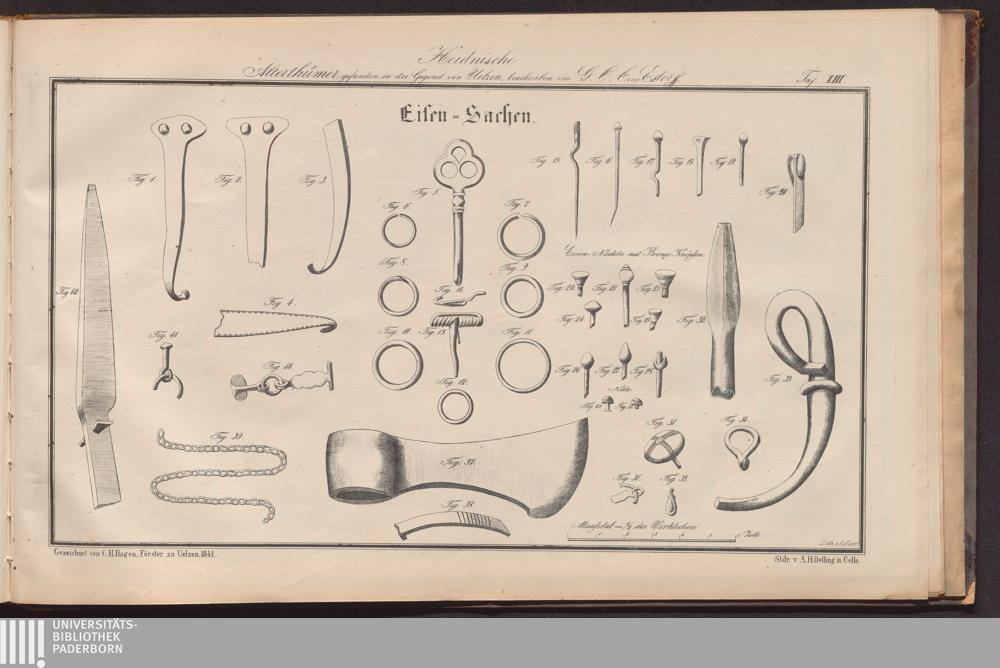 Heidnische
Alterthümer, gefunden in der Gegend von Uelzen, beschrieben von G. O. C. von Estorff.
Taf. XIII
Eisen-Sachen.
Fig. 1.
Fig. 2.
Fig. 3.
Fig. 5.
Fig. 6.
Fig. 7.
Fig. 15.
Fig. 16.
Fig. 17.
Fig. 18.
Fig. 19.
Fig. 20.
Eisen-Nadeln mit Bronze-Knöpfen.
Fig. 8.
Fig. 9
Fig. 14.
Fig. 22.
Fig. 21.
Fig. 23.
Fig. 42.
Fig. 4.
Fig. 24.
Fig. 32.
Fig. 41
Fig. 10
Fig. 13.
Fig. 11.
Fig. 40
Fig. 12.
Fig. 26.
Fig. 27.
Fig. 28.
Fig. 35.
Fig. 39
Fig. 37.
Fig. 34.
Fig. 38.
Maafsstab = ¼ der Wirklichen
Zolle
Gezeichnet von C.H.Hagen, Förster zu Uelzen. 1841.
Stdr. v. A.H.Oetling in Celle.
UNIVERSITÄTS-
BIBLIOTHEK
PADERBORN